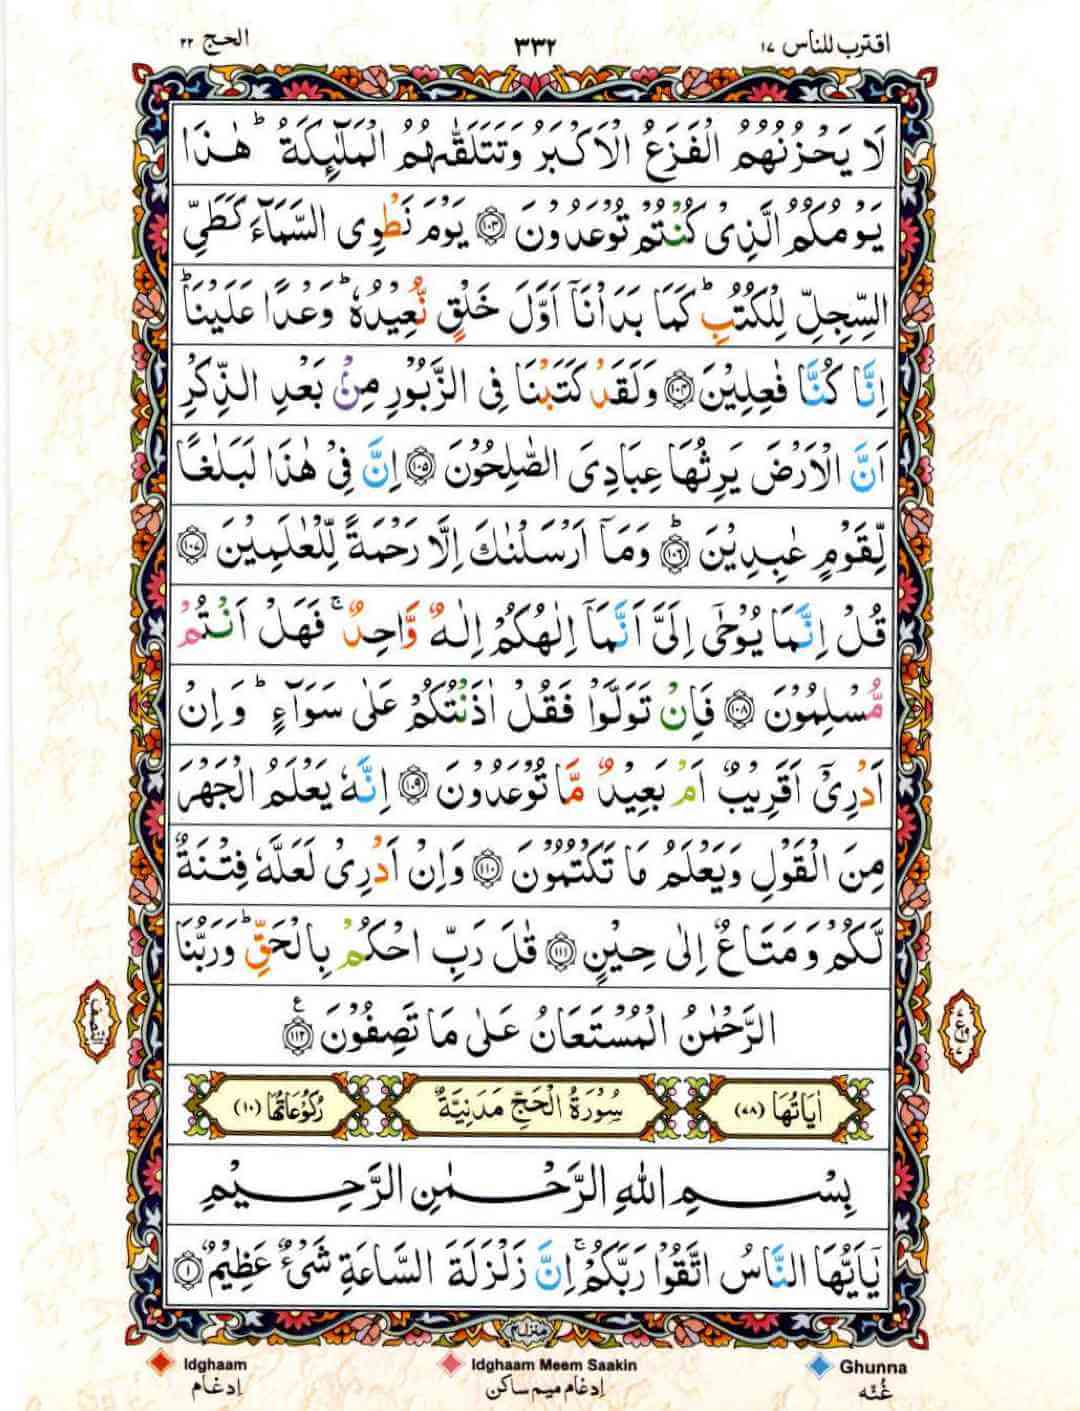 اقترب للناس ١٧
٣٣٢
الحج ٢٢
لَا يَحْزُنُهُمُ الْفَزَعُ الْاَكْبَرُ وَتَتَلَقّٰىهُمُ الْمَلٰٓئِكَةُ ؕ هٰذَا
يَوْمُكُمُ الَّذِىْ كُنْتُمْ تُوْعَدُوْنَ ﴿١٠٣﴾ يَوْمَ نَطْوِى السَّمَآءَ كَطَىِّ
السِّجِلِّ لِلْكُتُبِ ؕ كَمَا بَدَاْنَاۤ اَوَّلَ خَلْقٍ نُّعِيْدُهٗ ؕ وَعْدًا عَلَيْنَا ؕ
اِنَّا كُنَّا فٰعِلِيْنَ ﴿١٠٤﴾ وَلَقَدْ كَتَبْنَا فِى الزَّبُوْرِ مِنْۢ بَعْدِ الذِّكْرِ
اَنَّ الْاَرْضَ يَرِثُهَا عِبَادِىَ الصّٰلِحُوْنَ ﴿١٠٥﴾ اِنَّ فِىْ هٰذَا لَبَلٰغًا
لِّقَوْمٍ عٰبِدِيْنَ ؕ ﴿١٠٦﴾ وَمَاۤ اَرْسَلْنٰكَ اِلَّا رَحْمَةً لِّلْعٰلَمِيْنَ ﴿١٠٧﴾
قُلْ اِنَّمَا يُوْحٰٓى اِلَىَّ اَنَّمَاۤ اِلٰهُكُمْ اِلٰهٌ وَّاحِدٌ ۚ فَهَلْ اَنْتُمْ
مُّسْلِمُوْنَ ﴿١٠٨﴾ فَاِنْ تَوَلَّوْا فَقُلْ اٰذَنْتُكُمْ عَلٰى سَوَآءٍ ؕ وَاِنْ
اَدْرِىْۤ اَقَرِيْبٌ اَمْ بَعِيْدٌ مَّا تُوْعَدُوْنَ ﴿١٠٩﴾ اِنَّهٗ يَعْلَمُ الْجَهْرَ
مِنَ الْقَوْلِ وَيَعْلَمُ مَا تَكْتُمُوْنَ ﴿١١٠﴾ وَاِنْ اَدْرِىْ لَعَلَّهٗ فِتْنَةٌ
لَّكُمْ وَمَتَاعٌ اِلٰى حِيْنٍ ﴿١١١﴾ قٰلَ رَبِّ احْكُمْ بِالْحَقِّ ؕ وَرَبُّنَا
الرَّحْمٰنُ الْمُسْتَعَانُ عَلٰى مَا تَصِفُوْنَ ﴿١١٢﴾ ع
النصف
اٰيَاتُهَا (٧٨)
سُوْرَةُ الْحَجِّ مَدَنِيَّةٌ
رُكُوْعَاتُهَا (١٠)
بِسْمِ اللهِ الرَّحْمٰنِ الرَّحِيْمِ
يٰۤاَيُّهَا النَّاسُ اتَّقُوْا رَبَّكُمْ ۚ اِنَّ زَلْزَلَةَ السَّاعَةِ شَىْءٌ عَظِيْمٌ ﴿١﴾
منزل ٤
Idghaam
ادغام
Idghaam Meem Saakin
ادغام ميم ساكن
Ghunna
غُنّه